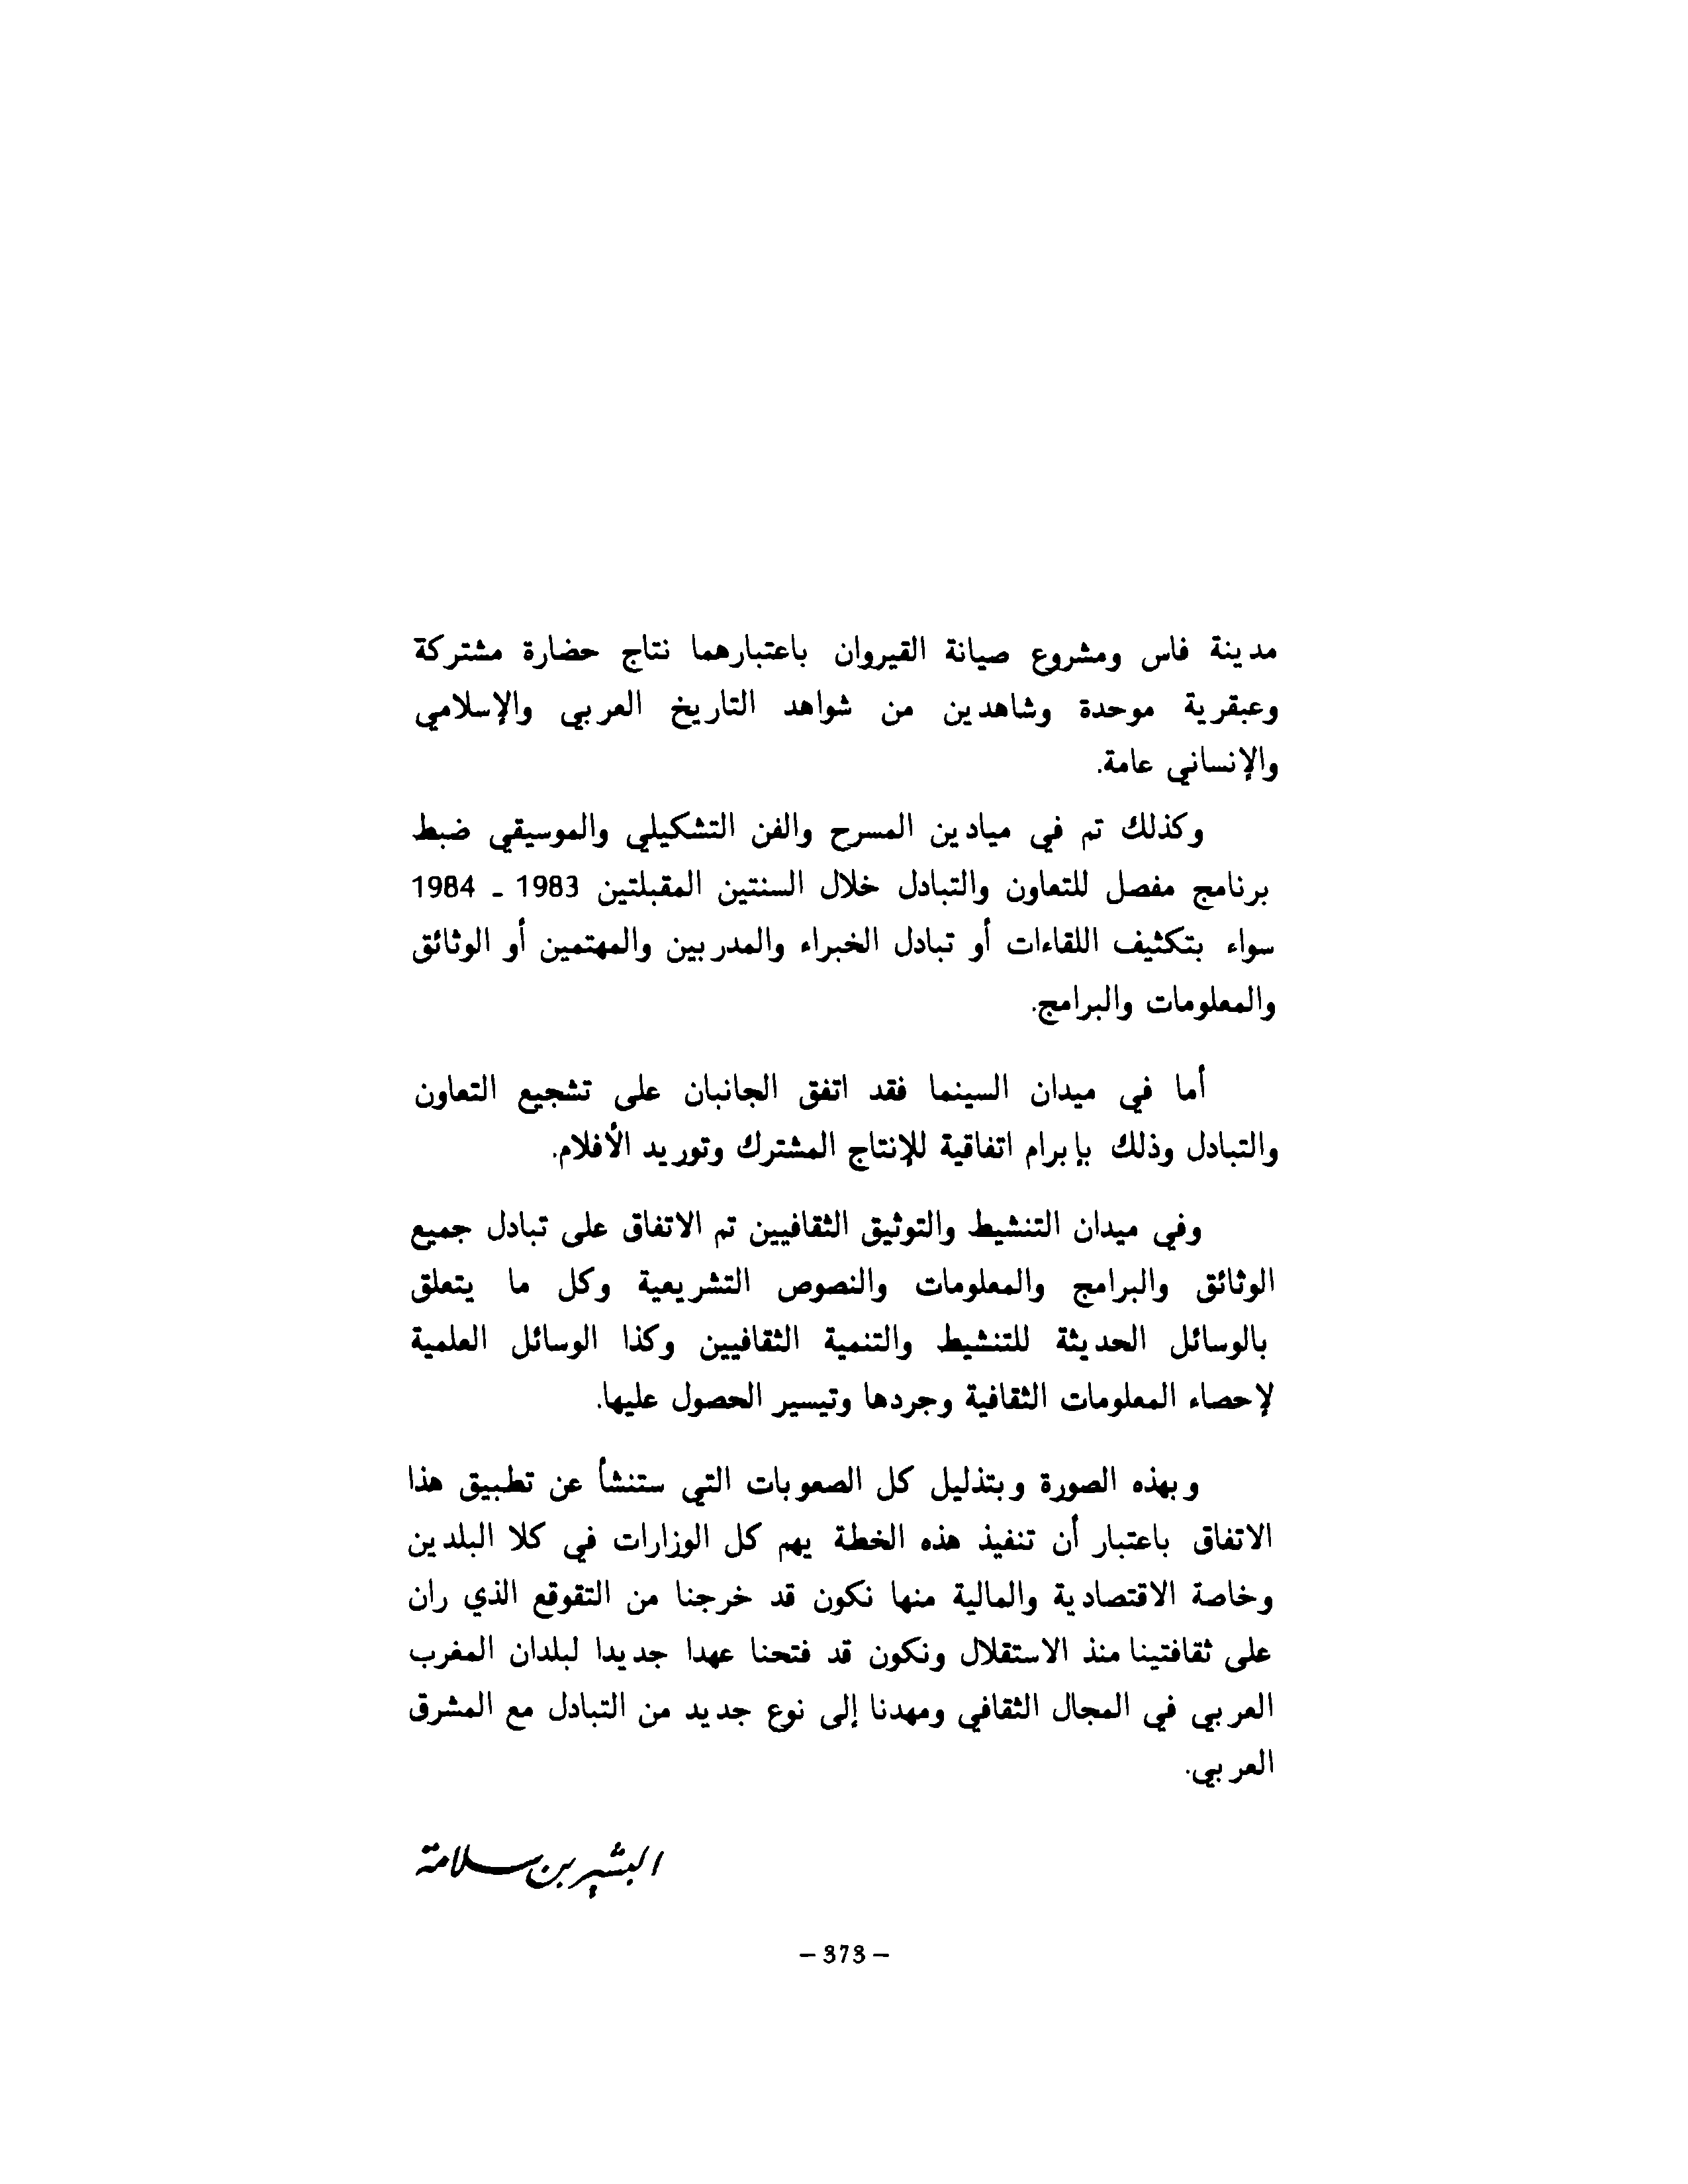 مدينة فاس ومشروع صيانة القيروان باعتبارهما نتاج حضارة مشتركة
وعبقرية موحدة وشاهدين من شواهد التاريخ العربي والإسلامي
والإنساني عامة.
وكذلك تم في ميادين المسرح والفن التشكيلي والموسيقي ضبط
برنامج مفصل للتعاون والتبادل خلال السنتين المقبلتين 1983 ـ 1984
سواء بتكثيف اللقاءات أو تبادل الخبراء والمدربين والمهتمين أو الوثائق
والمعلومات والبرامج.
أما في ميدان السينما فقد اتفق الجانبان على تشجيع التعاون
والتبادل وذلك بإبرام اتفاقية للإنتاج المشترك وتوريد الأفلام.
وفي ميدان التنشيط والتوثيق الثقافيين تم الاتفاق على تبادل جميع
الوثائق والبرامج والمعلومات والنصوص التشريعية وكل ما يتعلق
بالوسائل الحديثة للتنشيط والتنمية الثقافيين وكذا الوسائل العلمية
لإحصاء المعلومات الثقافية وجردها وتيسير الحصول عليها.
وبهذه الصورة وبتذليل كل الصعوبات التي ستنشأ عن تطبيق هذا
الاتفاق باعتبار أن تنفيذ هذه الخطة يهم كل الوزارات في كلا البلدين
وخاصة الاقتصادية والمالية منها نكون قد خرجنا من التقوقع الذي ران
على ثقافتينا منذ الاستقلال ونكون قد فتحنا عهدا جديدا لبلدان المغرب
العربي في المجال الثقافي ومهدنا إلى نوع جديد من التبادل مع المشرق
العربي.
البشير بن سلامة
– 373 –